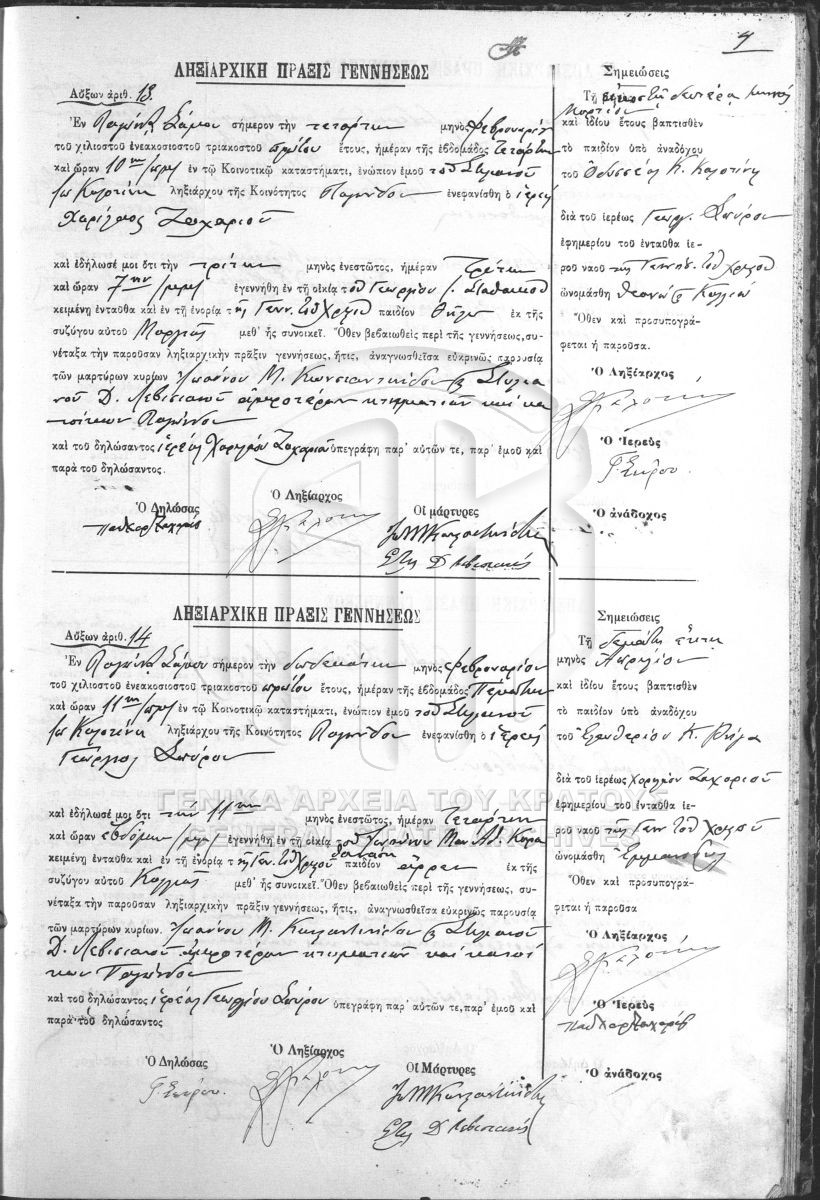 7
ΛΗΞΙΑΡΧΙΚΗ ΠΡΑΞΙΣ ΓΕΝΝΗΣΕΩΣ
Αὔξων ἀριθ. 13.
Ἐν Παγώνδᾳ Σάμου σήμερον τὴν τετάρτην μηνὸς Φεβρουαρίου
τοῦ χιλιοστοῦ ἐνεακοσιοστοῦ τριακοστοῦ πρώτου ἔτους, ἡμέραν τῆς ἑβδομάδος Τετάρτην
καὶ ὥραν 10ην π.μ. ἐν τῷ Κοινοτικῷ καταστήματι, ἐνώπιον ἐμοῦ τοῦ Στυλιανοῦ
ληξιάρχου τῆς Κοινότητος Παγώνδου ἐνεφανίσθη ὁ ἱερεὺς
Χαρίλαος Ζαχαρίου
καὶ ἐδήλωσέ μοι ὅτι τὴν τρίτην μηνὸς ἐνεστῶτος, ἡμέραν Τρίτην
καὶ ὥραν 7ην ἐγεννήθη ἐν τῇ οἰκίᾳ τοῦ Γεωργίου Ι. Σταθακοῦ
κειμένῃ ἐνταῦθα καὶ ἐν τῇ ἐνορίᾳ τῆς Γενν. τοῦ Χριστοῦ παιδίον θῆλυ ἐκ τῆς
συζύγου αὐτοῦ Μαρίας μεθ' ἧς συνοικεῖ. Ὅθεν βεβαιωθεὶς περὶ τῆς γεννήσεως, συ-
νέταξα τὴν παροῦσαν ληξιαρχικὴν πρᾶξιν γεννήσεως, ἥτις, ἀναγνωσθεῖσα εὐκρινῶς παρουσίᾳ
τῶν μαρτύρων κυρίων Ἰωάννου Μ. Κωνσταντινίδου & Στυλια
νοῦ Δ. Λεβισιανοῦ ἀμφοτέρων κτηματιῶν καὶ κα
τοίκων Παγώνδου
καὶ τοῦ δηλώσαντος ἱερέως Χαριλάου Ζαχαρίου ὑπεγράφη παρ' αὐτῶν τε, παρ' ἐμοῦ καὶ
παρὰ τοῦ δηλώσαντος.
Ὁ Δηλώσας
Ὁ Ληξίαρχος
Οἱ μάρτυρες
Σημειώσεις
Τῇ εἰκοστῇ δευτέρᾳ μηνὸς
Μαρτίου
καὶ ἰδίου ἔτους βαπτισθὲν
τὸ παιδίον ὑπὸ ἀναδόχου
τοῦ Ὀδυσσέως Κ.
διὰ τοῦ ἱερέως Γεωργ. Σπύρου
ἐφημερίου τοῦ ἐνταῦθα ἱε-
ροῦ ναοῦ τῆς Γεννήσ. τοῦ Χριστοῦ
ὠνομάσθη
Ὅθεν καὶ προσυπογρά-
φεται ἡ παροῦσα.
Ὁ Ληξίαρχος
Ὁ Ἱερεὺς
Γ. Σπύρου
Ὁ ἀνάδοχος
ΛΗΞΙΑΡΧΙΚΗ ΠΡΑΞΙΣ ΓΕΝΝΗΣΕΩΣ
Αὔξων ἀριθ. 14
Ἐν Παγώνδᾳ Σάμου σήμερον τὴν δωδεκάτην μηνὸς Φεβρουαρίου
τοῦ χιλιοστοῦ ἐνεακοσιοστοῦ τριακοστοῦ πρώτου ἔτους, ἡμέραν τῆς ἑβδομάδος Πέμπτην
καὶ ὥραν 11ην π.μ. ἐν τῷ Κοινοτικῷ καταστήματι, ἐνώπιον ἐμοῦ τοῦ Στυλιανοῦ
ληξιάρχου τῆς Κοινότητος Παγώνδου ἐνεφανίσθη ὁ ἱερεὺς
Γεώργιος Σπύρου
καὶ ἐδήλωσέ μοι ὅτι τὴν 11ην μηνὸς ἐνεστῶτος, ἡμέραν τετάρτην
καὶ ὥραν ἑβδόμην ἐγεννήθη ἐν τῇ οἰκίᾳ τοῦ
κειμένῃ ἐνταῦθα καὶ ἐν τῇ ἐνορίᾳ τῆς Γεν. τοῦ Χριστοῦ παιδίον ἄρρεν ἐκ τῆς
συζύγου αὐτοῦ μεθ' ἧς συνοικεῖ. Ὅθεν βεβαιωθεὶς περὶ τῆς γεννήσεως, συ-
νέταξα τὴν παροῦσαν ληξιαρχικὴν πρᾶξιν γεννήσεως, ἥτις, ἀναγνωσθεῖσα εὐκρινῶς παρουσίᾳ
τῶν μαρτύρων κυρίων. Ἰωάννου Μ. Κωνσταντινίδου & Στυλιανοῦ
Δ. Λεβισιανοῦ ἀμφοτέρων κτηματιῶν καὶ κατοί
κων Παγώνδου
καὶ τοῦ δηλώσαντος ἱερέως Γεωργίου Σπύρου ὑπεγράφη παρ' αὐτῶν τε, παρ' ἐμοῦ καὶ
παρὰ τοῦ δηλώσαντος
Ὁ Δηλώσας
Γ. Σπύρου.
Ὁ Ληξίαρχος
Οἱ Μάρτυρες
Σημειώσεις
Τῇ Πέμπτῃ
μηνὸς Ἀπριλίου
καὶ ἰδίου ἔτους βαπτισθὲν
τὸ παιδίον ὑπὸ ἀναδόχου
τοῦ Ἐλευθερίου Α. Ρήγα
διὰ τοῦ ἱερέως Χαριλάου Ζαχαρίου
ἐφημερίου τοῦ ἐνταῦθα ἱε-
ροῦ ναοῦ τῆς Γενν. τοῦ Χριστοῦ
ὠνομάσθη Ἐμμανουὴλ
Ὅθεν καὶ προσυπογρά-
φεται ἡ παροῦσα
Ὁ Ληξίαρχος
Ὁ Ἱερεὺς
Ὁ ἀνάδοχος
ΓΕΝΙΚΑ ΑΡΧΕΙΑ ΤΟΥ ΚΡΑΤΟΥΣ
GENERAL STATE ARCHIVES